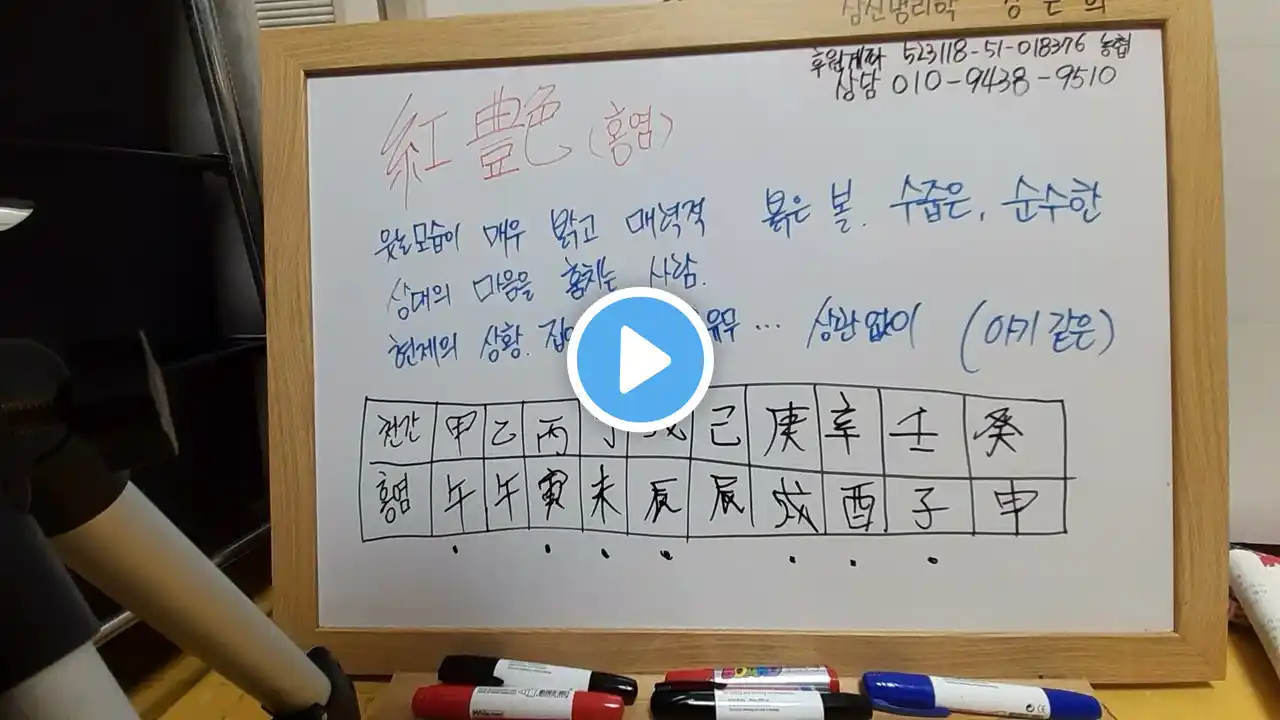 심신명리학 - 강 은 희
후원계좌 523118-51-018376 농협
상담 010-9438-9510
紅艶 (홍염)
웃는모습이 매우 밝고 매력적 붉은 볼. 수줍은, 순수한
상대의 마음을 훔치는 사람.
현제의 상황. 유무 ... 상관없이 (아기같은)
천간 甲 乙 丙 丁 戊 己 庚 辛 壬 癸
홍염 午 午 寅 未 辰 辰 戌 酉 子 申